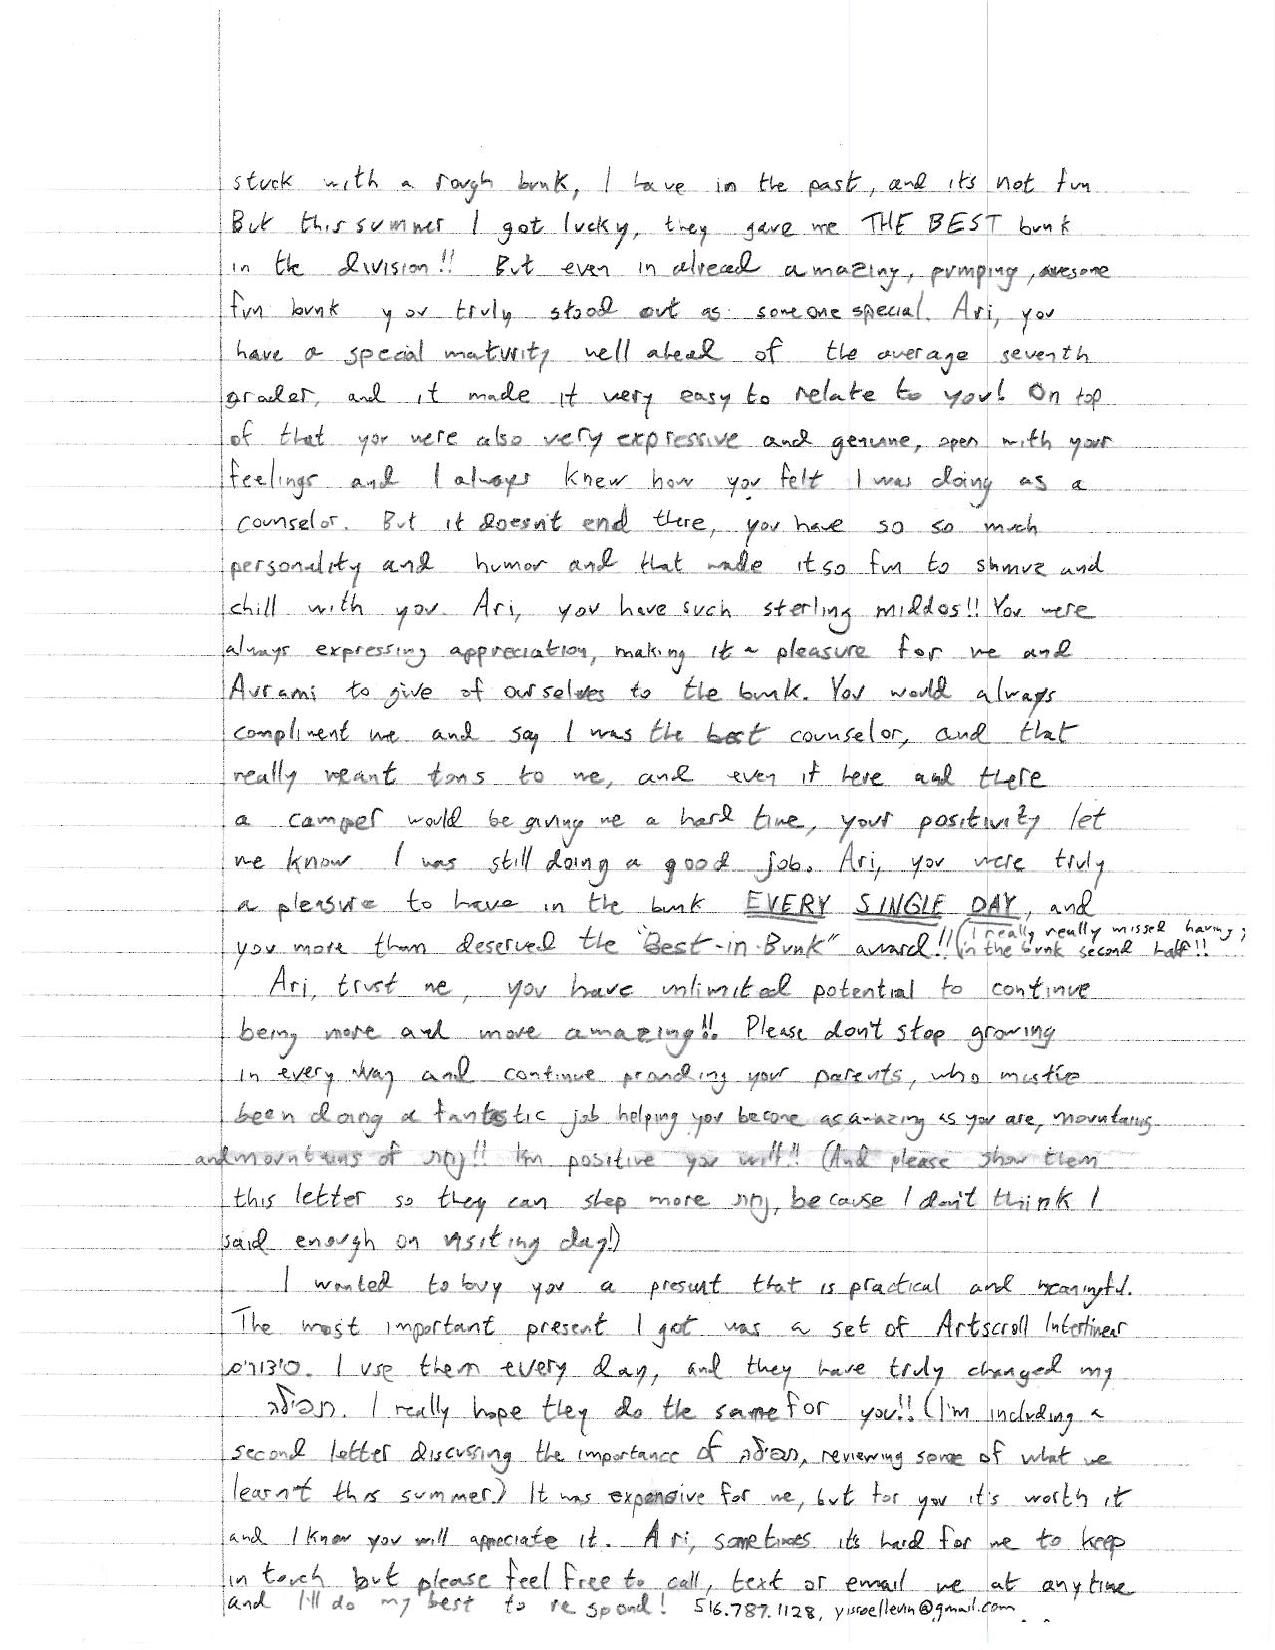 stuck with a rough bunk, I have in the past, and its not fun
But this summer I got lucky, they gave me THE BEST bunk
in the division!! But even in alread amazing, pumping, awesome
fun bunk you truly stood out as someone special. Ari, you
have a special maturity well ahead of the average seventh
grader, and it made it very easy to relate to you! On top
of that you were also very expressive and genuine, open with your
feelings and I always knew how you felt I was doing as a
counselor. But it doesn't end there, you have so so much
personality and humor and that made it so fun to shmuze and
chill with you. Ari, you have such sterling middos!! You were
always expressing appreciation, making it a pleasure for me and
Avrami to give of ourselves to the bunk. You would always
compliment me and say I was the best counselor, and that
really meant tons to me, and even if here and there
a camper would be giving me a hard time, your positivity let
me know I was still doing a good job. Ari, you were truly
a pleasure to have in the bunk EVERY SINGLE DAY, and
you more than deserved the "Best-in-Bunk" award!! (I really really missed having
in the bunk second half!!
Ari, trust me, you have unlimited potential to continue
being more and more amazing!! Please don't stop growing
in every way and continue providing your parents, who must've
been doing a fantastic job helping you become as amazing as you are, mountains
and mountains of נחת!! I'm positive you will!! (And please show them
this letter so they can shep more נחת, because I don't think I
said enough on visiting day!)
I wanted to buy you a present that is practical and meaningful.
The most important present I got was a set of Artscroll Interlinear
סידורים. I use them every day, and they have truly changed my
תפילה. I really hope they do the same for you!! (I'm including a
second letter discussing the importance of תפילה, reviewing some of what we
learnt this summer.) It was expensive for me, but for you it's worth it
and I know you will appreciate it. Ari, sometimes its hard for me to keep
in touch but please feel free to call, text or email me at anytime
and I'll do my best to respond! 516.787.1128, yisroellevin@gmail.com